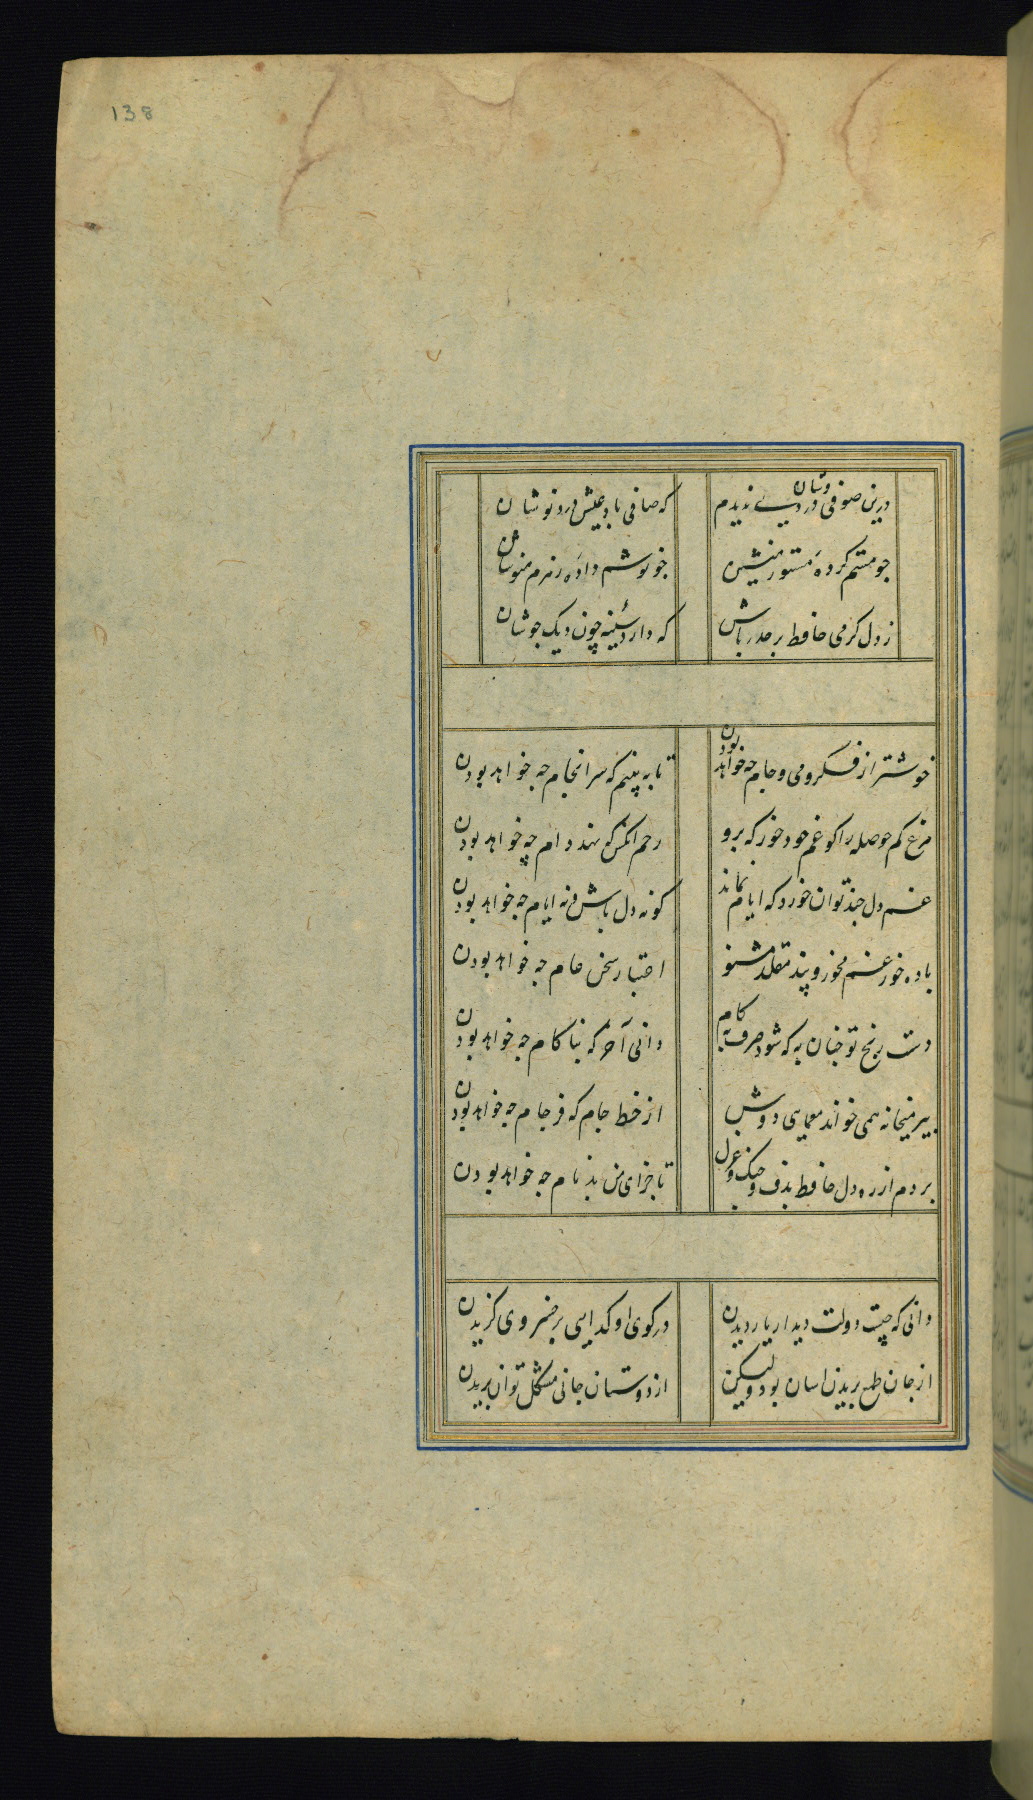 138
درین صوفی وشان دردی ندیدم که صافی باد عیش دردنوشان
چو مستم کردهٔ مستور منشین چو نوشم دادهٔ زهرم منوشان
ز دل گرمی حافظ بر حذر باش که دارد سینه چون دیک جوشان
خوشتر از فکر و می و جام چه خواهد بودن تا به بینم که سرانجام چه خواهد بودن
مرغ کم حوصله را کو غم خود خور که برو رحم انکس که نهد دام چه خواهد بودن
غم دل چند توان خورد که ایام نماند کو نه دل باش و نه ایام چه خواهد بودن
باده خور غم مخور و پند مقلد مشنو اعتبار سخن عام چه خواهد بودن
دست رنج تو چنان به که شود صرف به کام دانی آخر که بناکام چه خواهد بودن
پیر میخانه همی خواند معمایی دوش از خط جام که فرجام چه خواهد بودن
بردم از ره دل حافظ بدف و چنک و غزل تا جزای من بدنام چه خواهد بودن
دانی که چیست دولت دیدار یار دیدن در کوی او کدایی بر خسروی کزیدن
از جان طمع بریدن اسان بود ولیکن از دوستان جانی مشکل توان بریدن